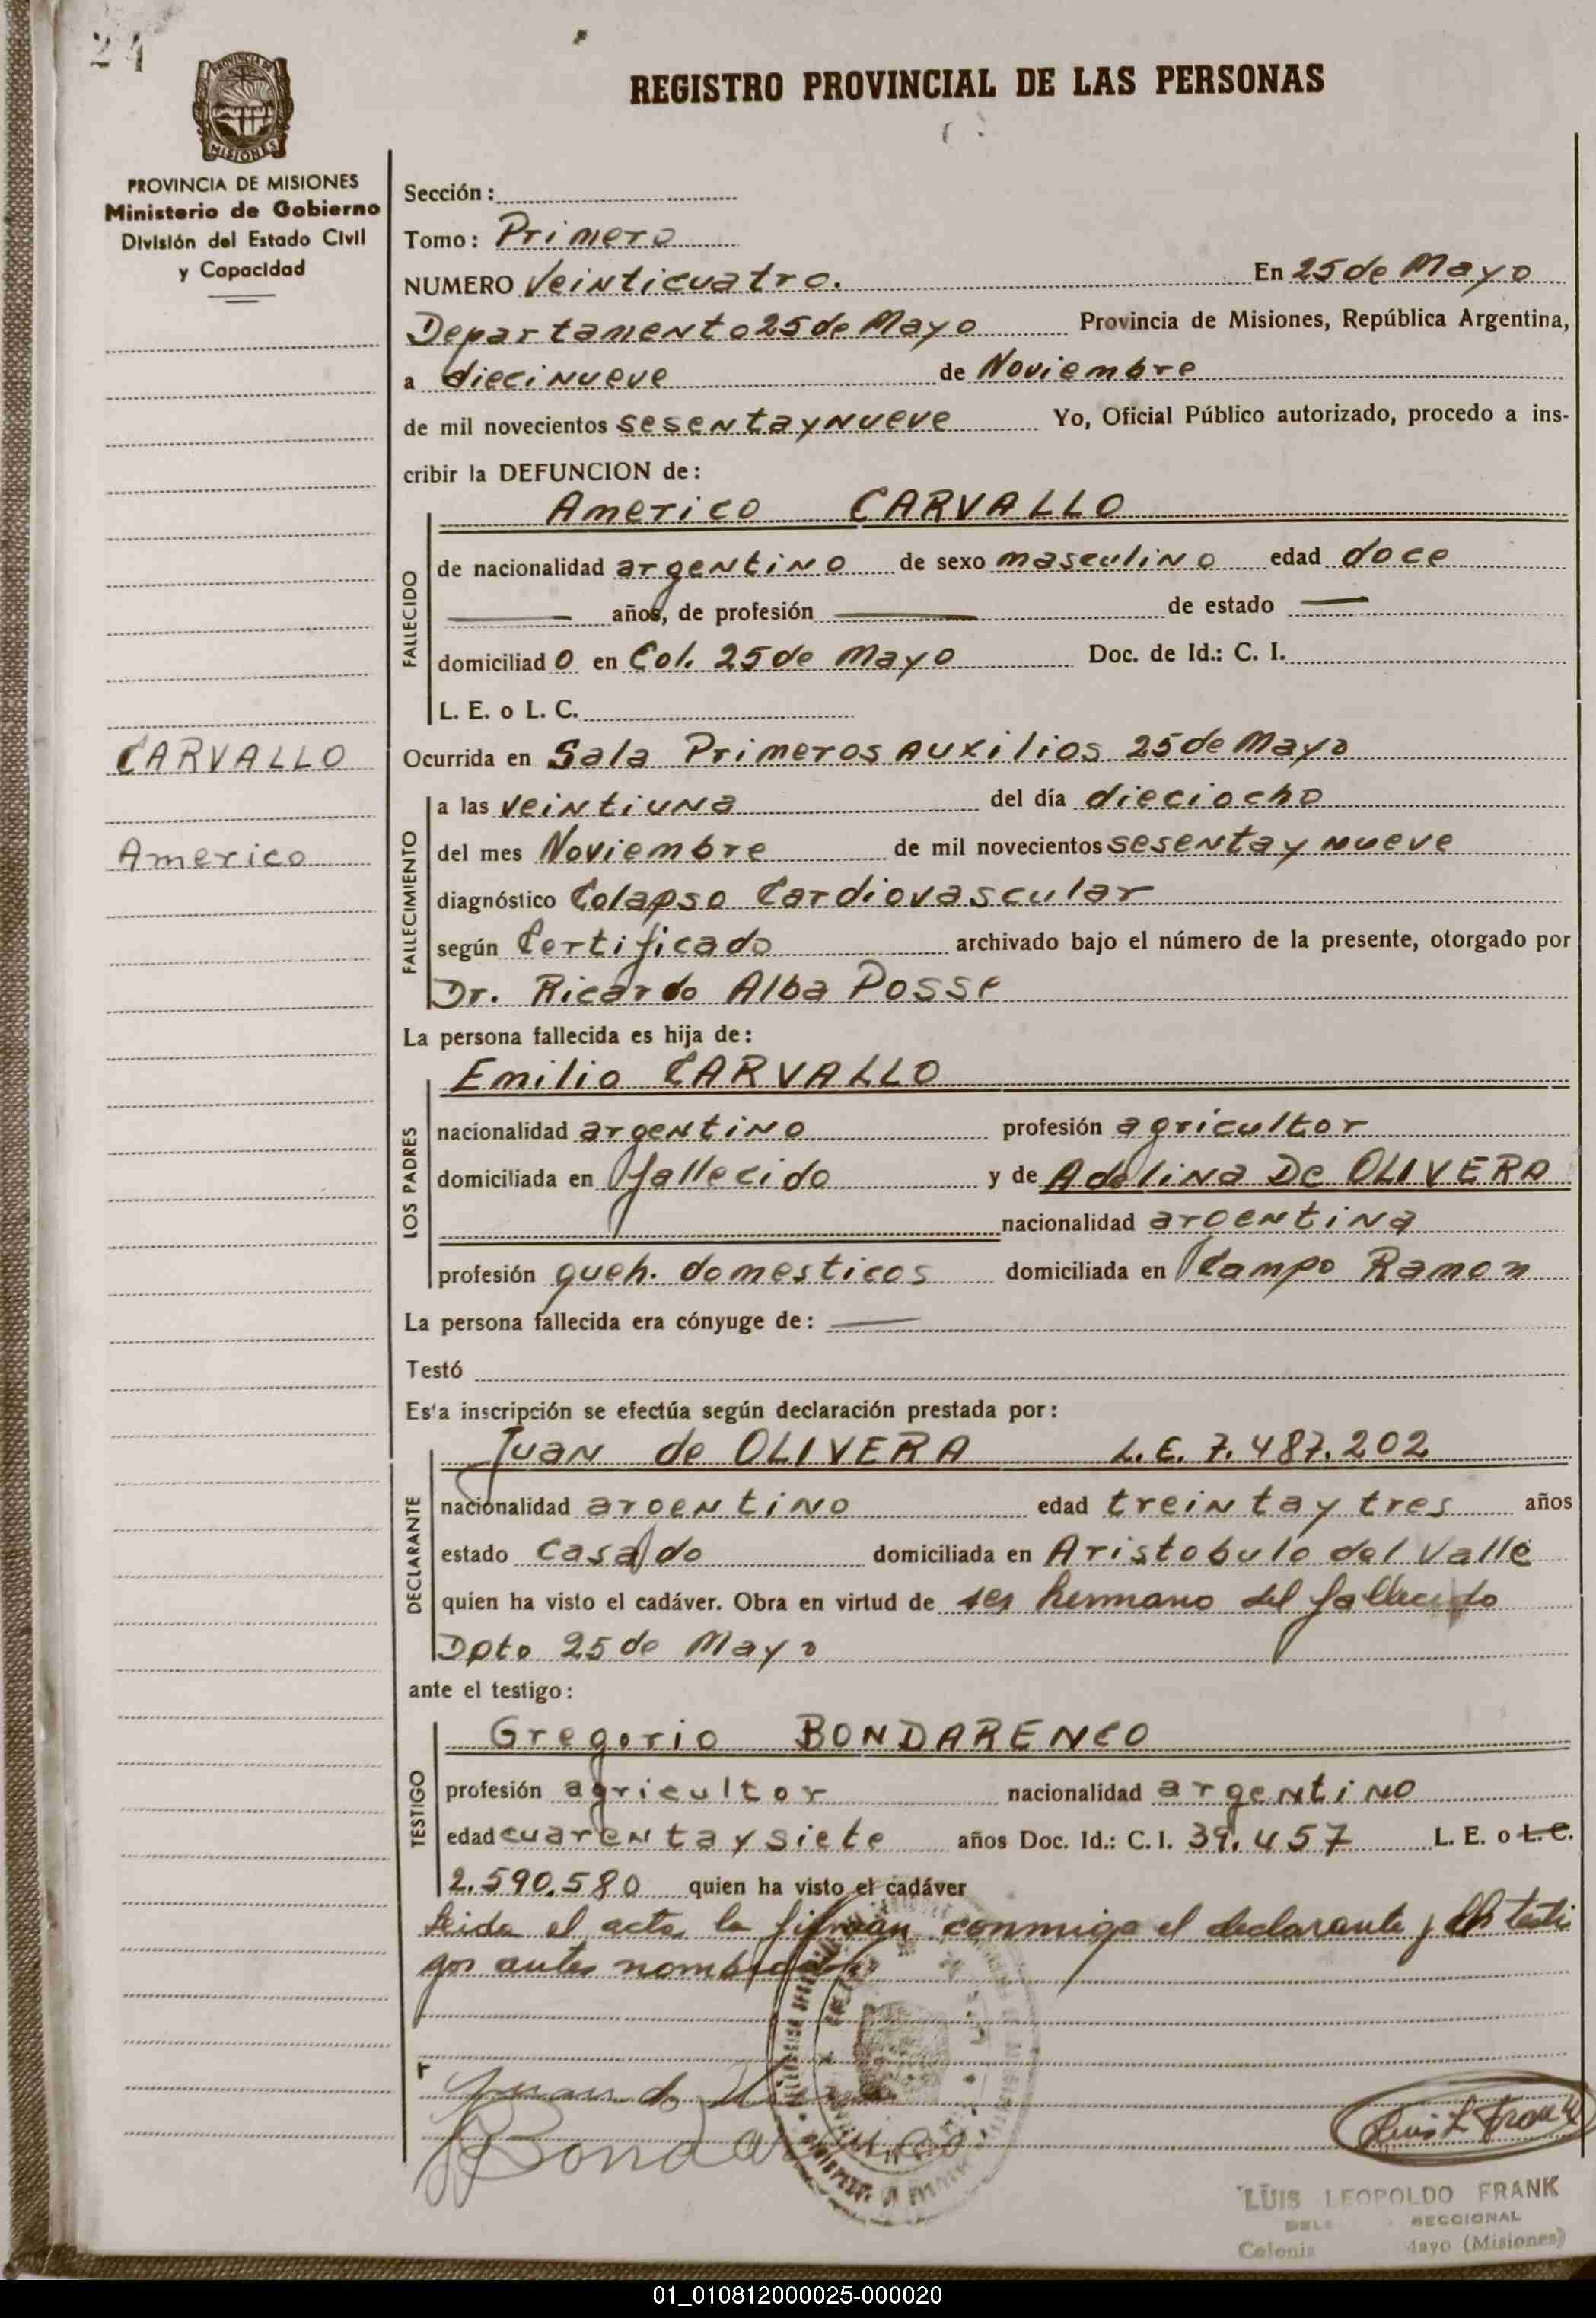 24
REGISTRO PROVINCIAL DE LAS PERSONAS
PROVINCIA DE MISIONES
Ministerio de Gobierno
División del Estado Civil
y Capacidad
Sección:
Tomo: Primero
NUMERO Veinticuatro. En 25 de Mayo
Departamento 25 de Mayo Provincia de Misiones, República Argentina,
a diecinueve de Noviembre
de mil novecientos sesenta y nueve Yo, Oficial Público autorizado, procedo a ins-
cribir la DEFUNCION de:
Americo CARVALLO
FALLECIDO
de nacionalidad argentino de sexo masculino edad doce
años, de profesión de estado
domiciliado en Col. 25 de Mayo Doc. de Id.: C. I.
L. E. o L. C.
CARVALLO
Americo
Ocurrida en Sala Primeros Auxilios 25 de Mayo
FALLECIMIENTO
a las veintiuna del día dieciocho
del mes Noviembre de mil novecientos sesenta y nueve
diagnóstico Colapso Cardiovascular
según Certificado archivado bajo el número de la presente, otorgado por
Dr. Ricardo Alba Posse
La persona fallecida es hija de:
Emilio CARVALLO
LOS PADRES
nacionalidad argentino profesión agricultor
domiciliada en fallecido y de Adelina De OLIVERA
nacionalidad argentina
profesión queh. domesticos domiciliada en Campo Ramon
La persona fallecida era cónyuge de:
Testó
Esta inscripción se efectúa según declaración prestada por:
Juan de OLIVERA L.E. 7.487.202
DECLARANTE
nacionalidad argentino edad treinta y tres años
estado Casado domiciliada en Aristobulo del Valle
quien ha visto el cadáver. Obra en virtud de ser hermano del fallecido
Dpto 25 de Mayo
ante el testigo:
Gregorio BONDARENCO
TESTIGO
profesión agricultor nacionalidad argentino
edad cuarenta y siete años Doc. Id.: C. I. 39.457 L. E. o L. C.
2.590.580 quien ha visto el cadáver
Leida el acta la firman conmigo el declarante y testi
gos antes nombrados
Juan de
Bondarenco
Luis L Frank
LUIS LEOPOLDO FRANK
SECCIONAL
Colonia Mayo (Misiones)
01_010812000025-000020